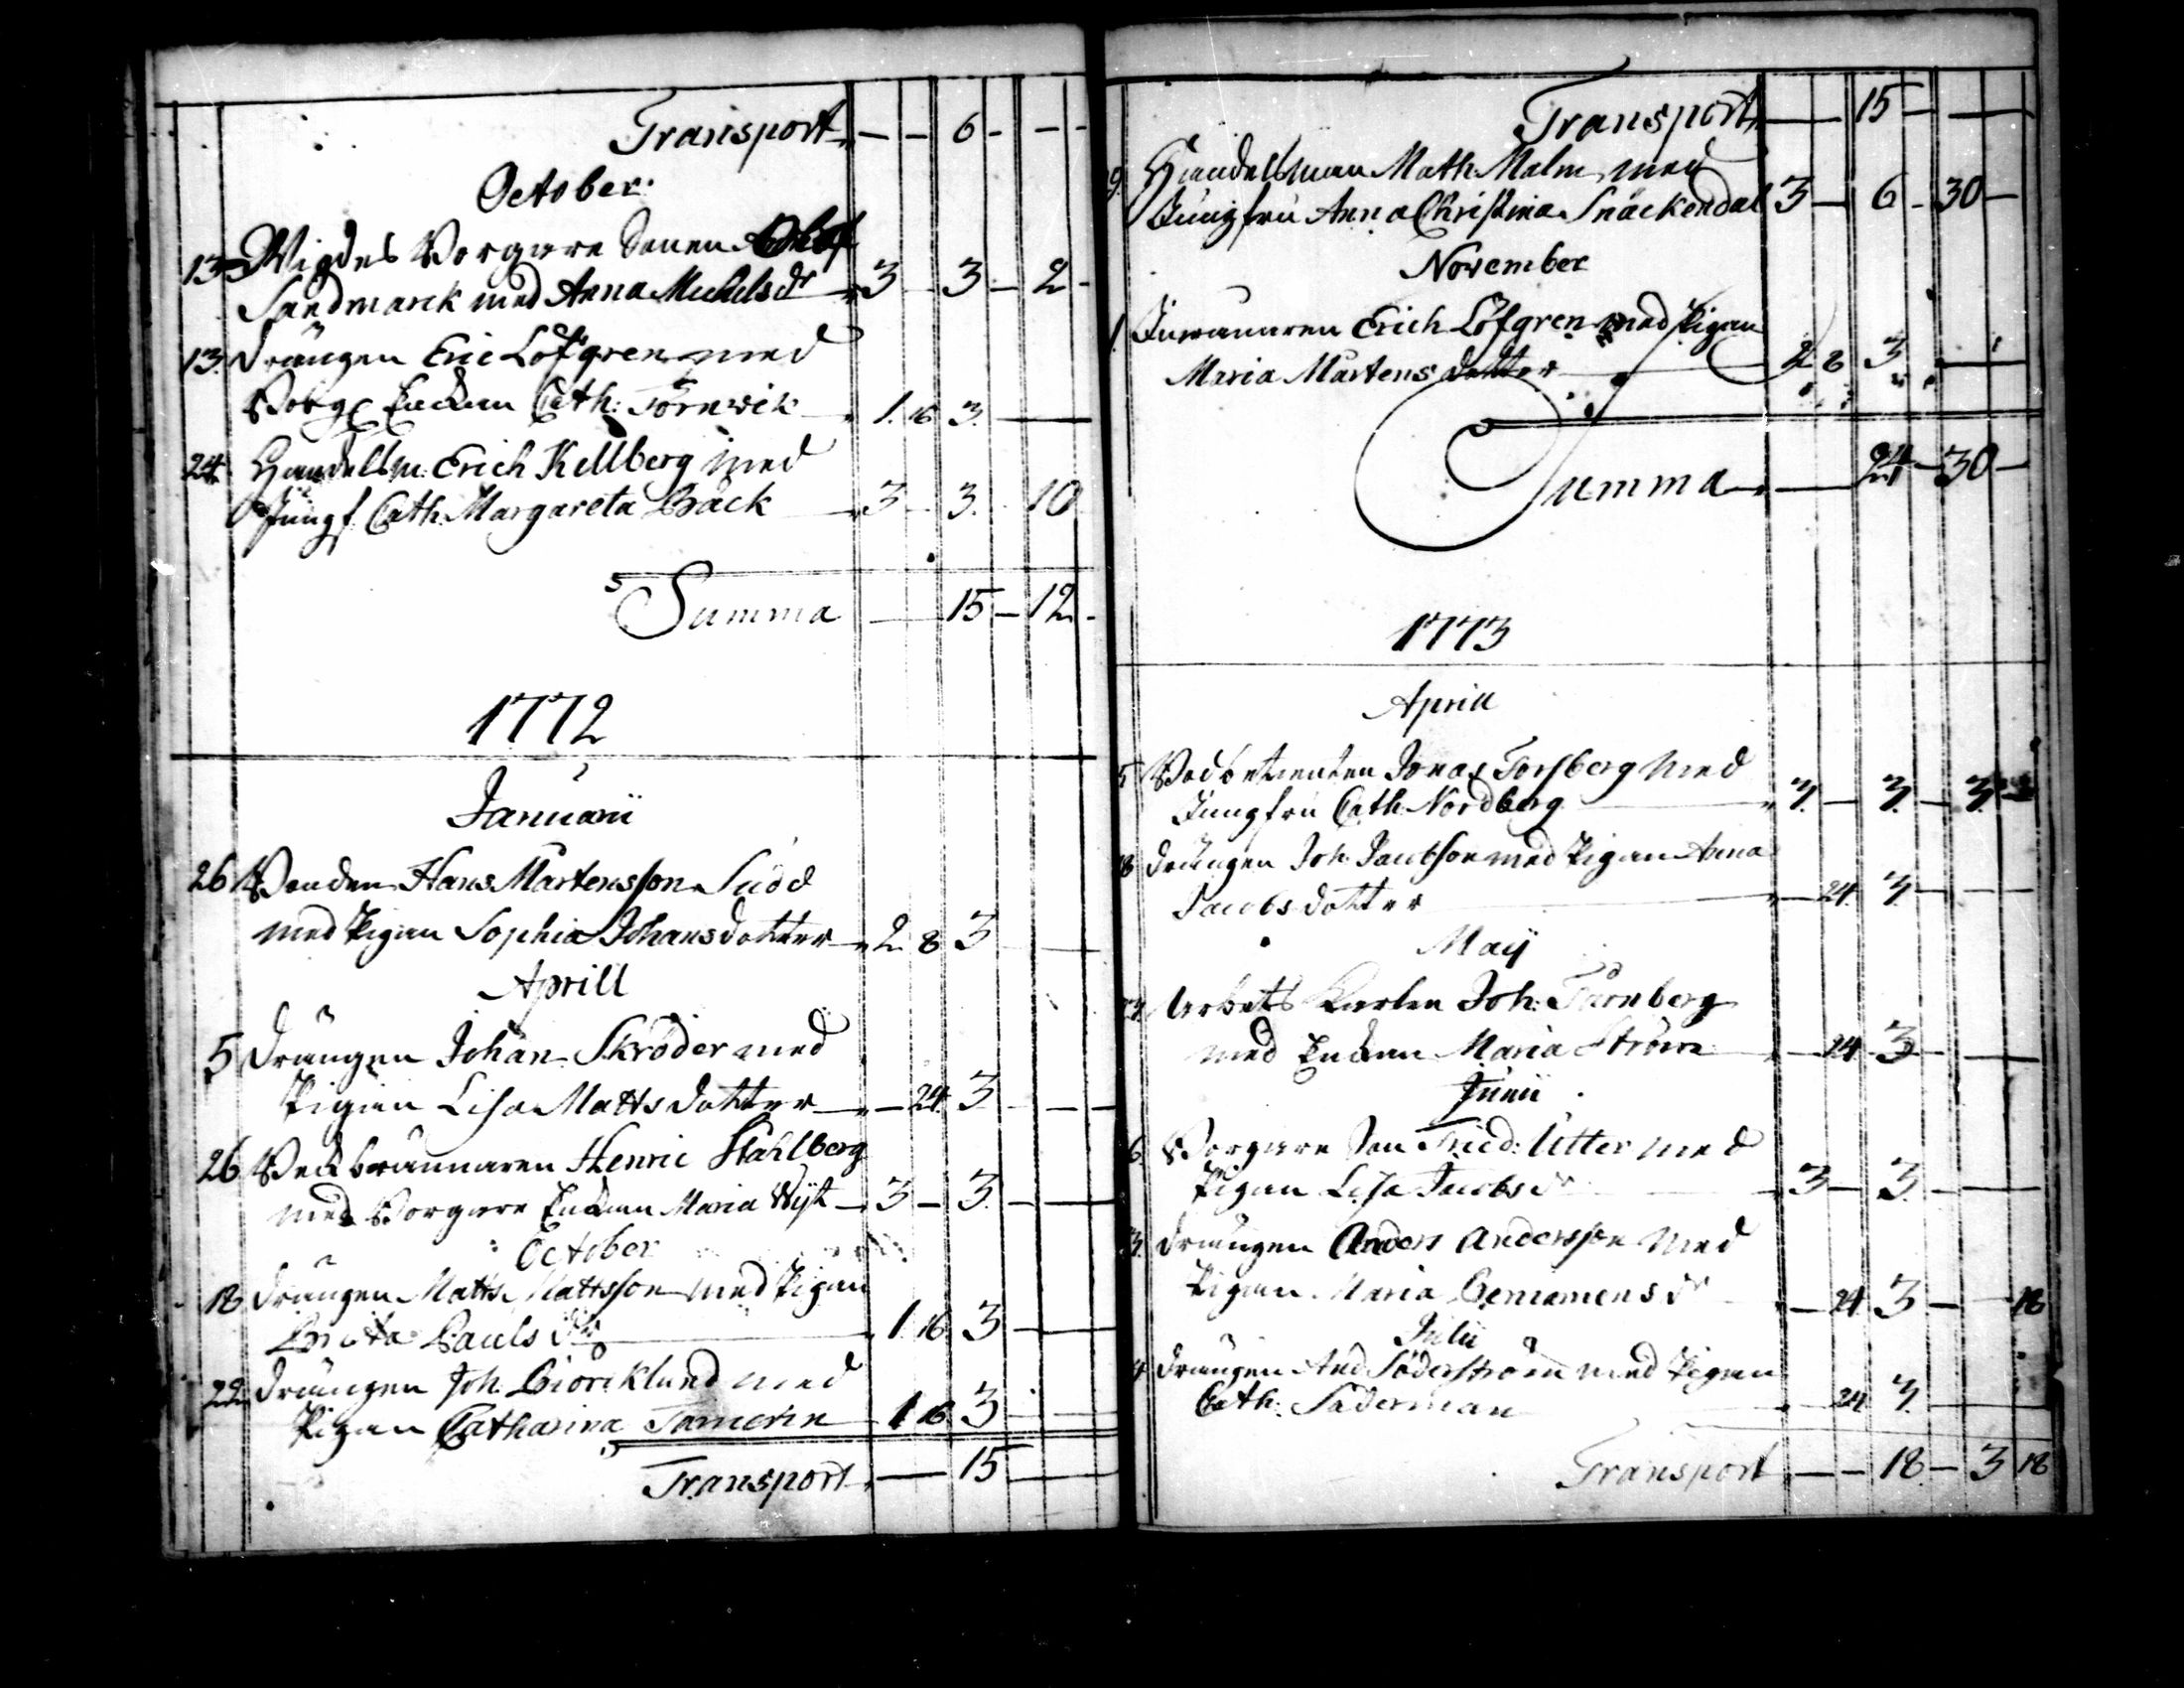 Transport — — 6 - - -
October
13 Wigdes Borgare Sonen
Sandmarck med Anna Michels dr 3 — 3 — 2 -
13. Drängen Eric Löfgren med
Borg. Enckan Cath: Törnwik 1. 16 3. —
24 Handelsm. Erich Kellberg med
Jungf. Cath. Margareta Bäck 3 - 3. 10
Summa — 15 — 12 -
1772
Januarii
26 Bonden Hans Mårtensson Siöd
med Pigan Sophia Johansdotter 2 8 3 —
Aprill
5 Drängen Johan Skröder med
Pigan Lisa Matts dotter — 24. 3 — —
26 Henric Ståhlberg
med Borgare Enckan Maria — 3 — 3. — —
October
18 Drängen Matts Mattsson med Pigan
Brita Pauls dr 1. 16 3 — —
22. Drängen Joh. Biörcklund med
Pigan Catharina Tamerin 1 16 3 — —
Transport — 15 — —
Transport — 15 — —
9. Handelsman Math. Malm med
Jungfru Anna Christina Snäckendal 3 — 6 - 30 —
November
1. Erich Löfgren med Pigan
Maria Mårtens dotter 2 8 3 — —
Summa — 24 — 30 —
1773
Aprill
5 Jonas Forsberg med
Jungfru Cath. Nordberg 3. — 3. — 3.
18 Drängen Joh. Jacobson med Pigan Anna
Jacobs dotter — 24. 3. — —
Maij
Arbets Karlen Joh: Törnberg
med Enckan Maria Ström — 24 3 — —
Junii
6. Borgare Son Fried: Utter med
Pigan Lisa Jacobs dr 3 — 3. — —
Drängen Anders Andersson med
Pigan Maria Beniamens dr — 24. 3 — 18
Julii
4 Drängen And. Söderström med Pigan
Cath: Söderman 24 3. — —
Transport — — 18. — 3 18